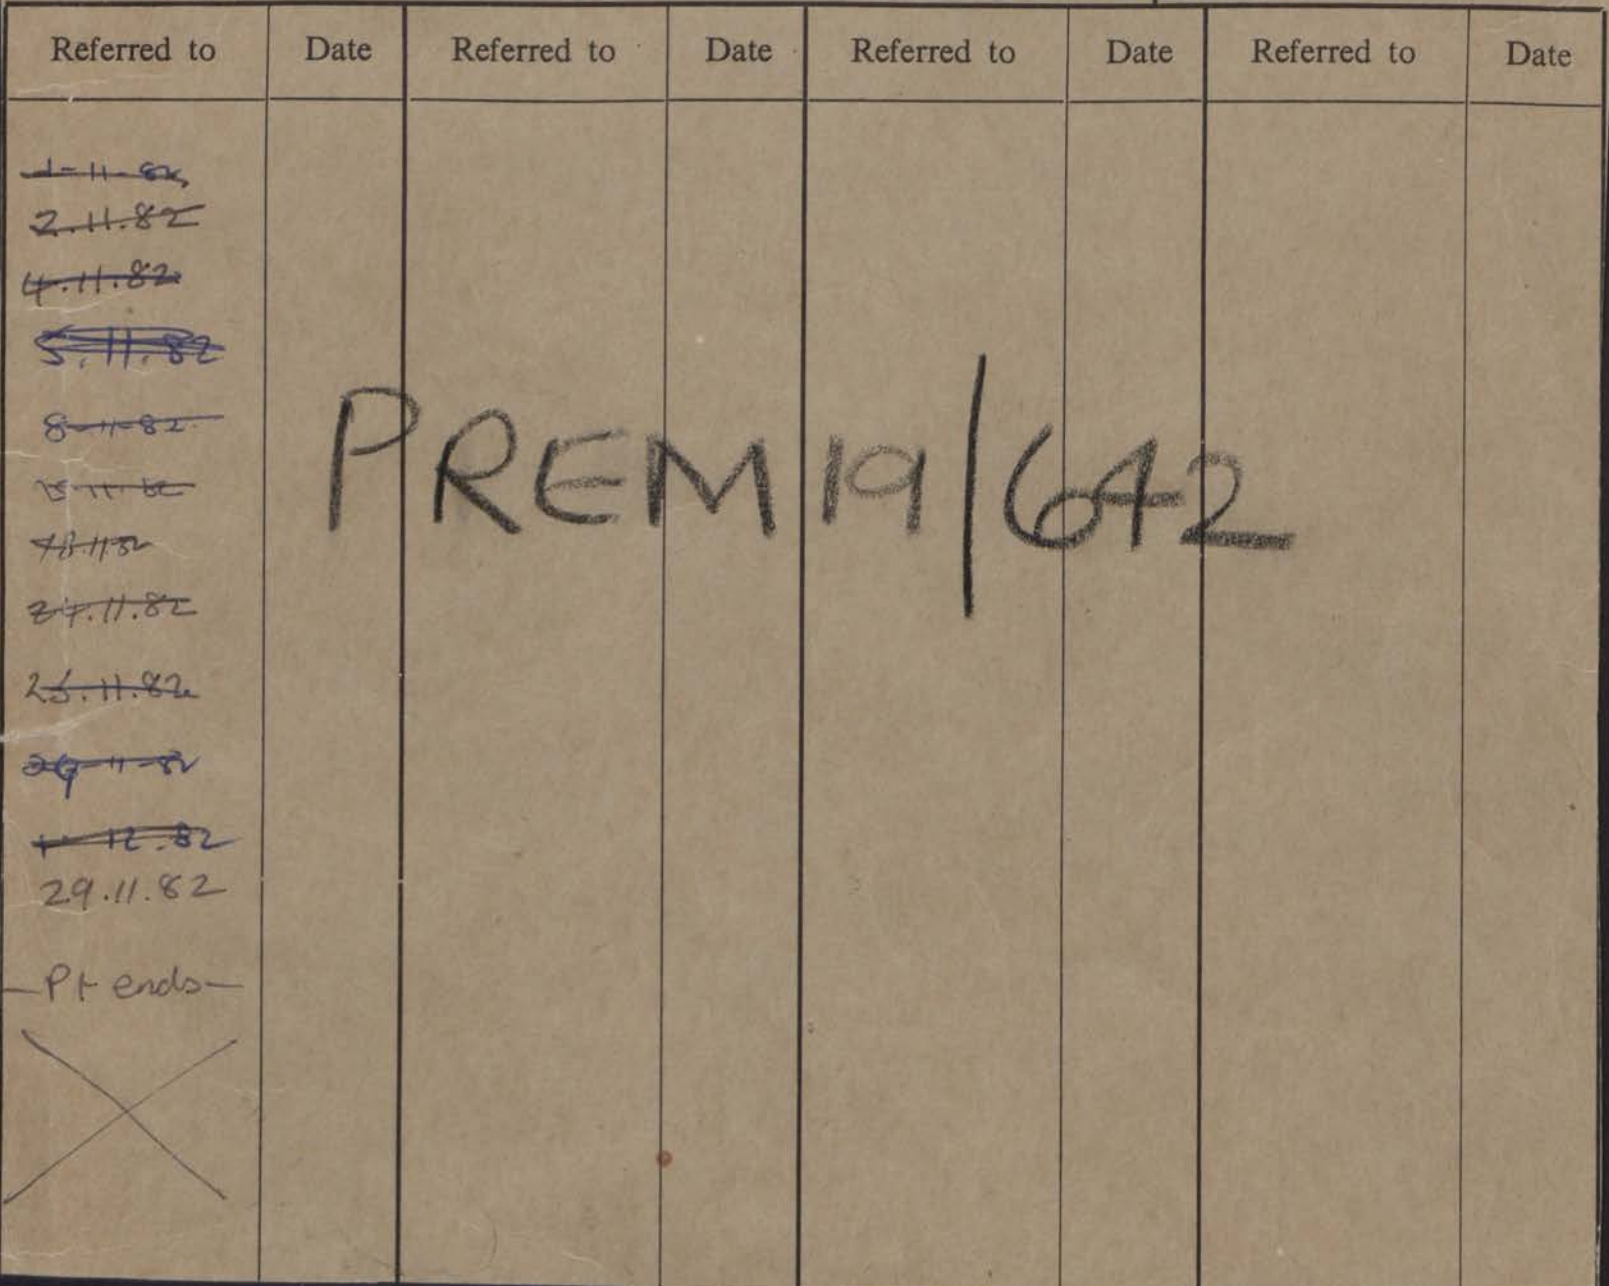 Referred to Date Referred to Date Referred to Date Referred to Date
1-11-82
2.11.82
4.11.82
5.11.82
8-11-82
PREM 19/642
15-11-82
18.11.82
25.11.82
29-11-82
1-12.82
29.11.82
- Pt ends -